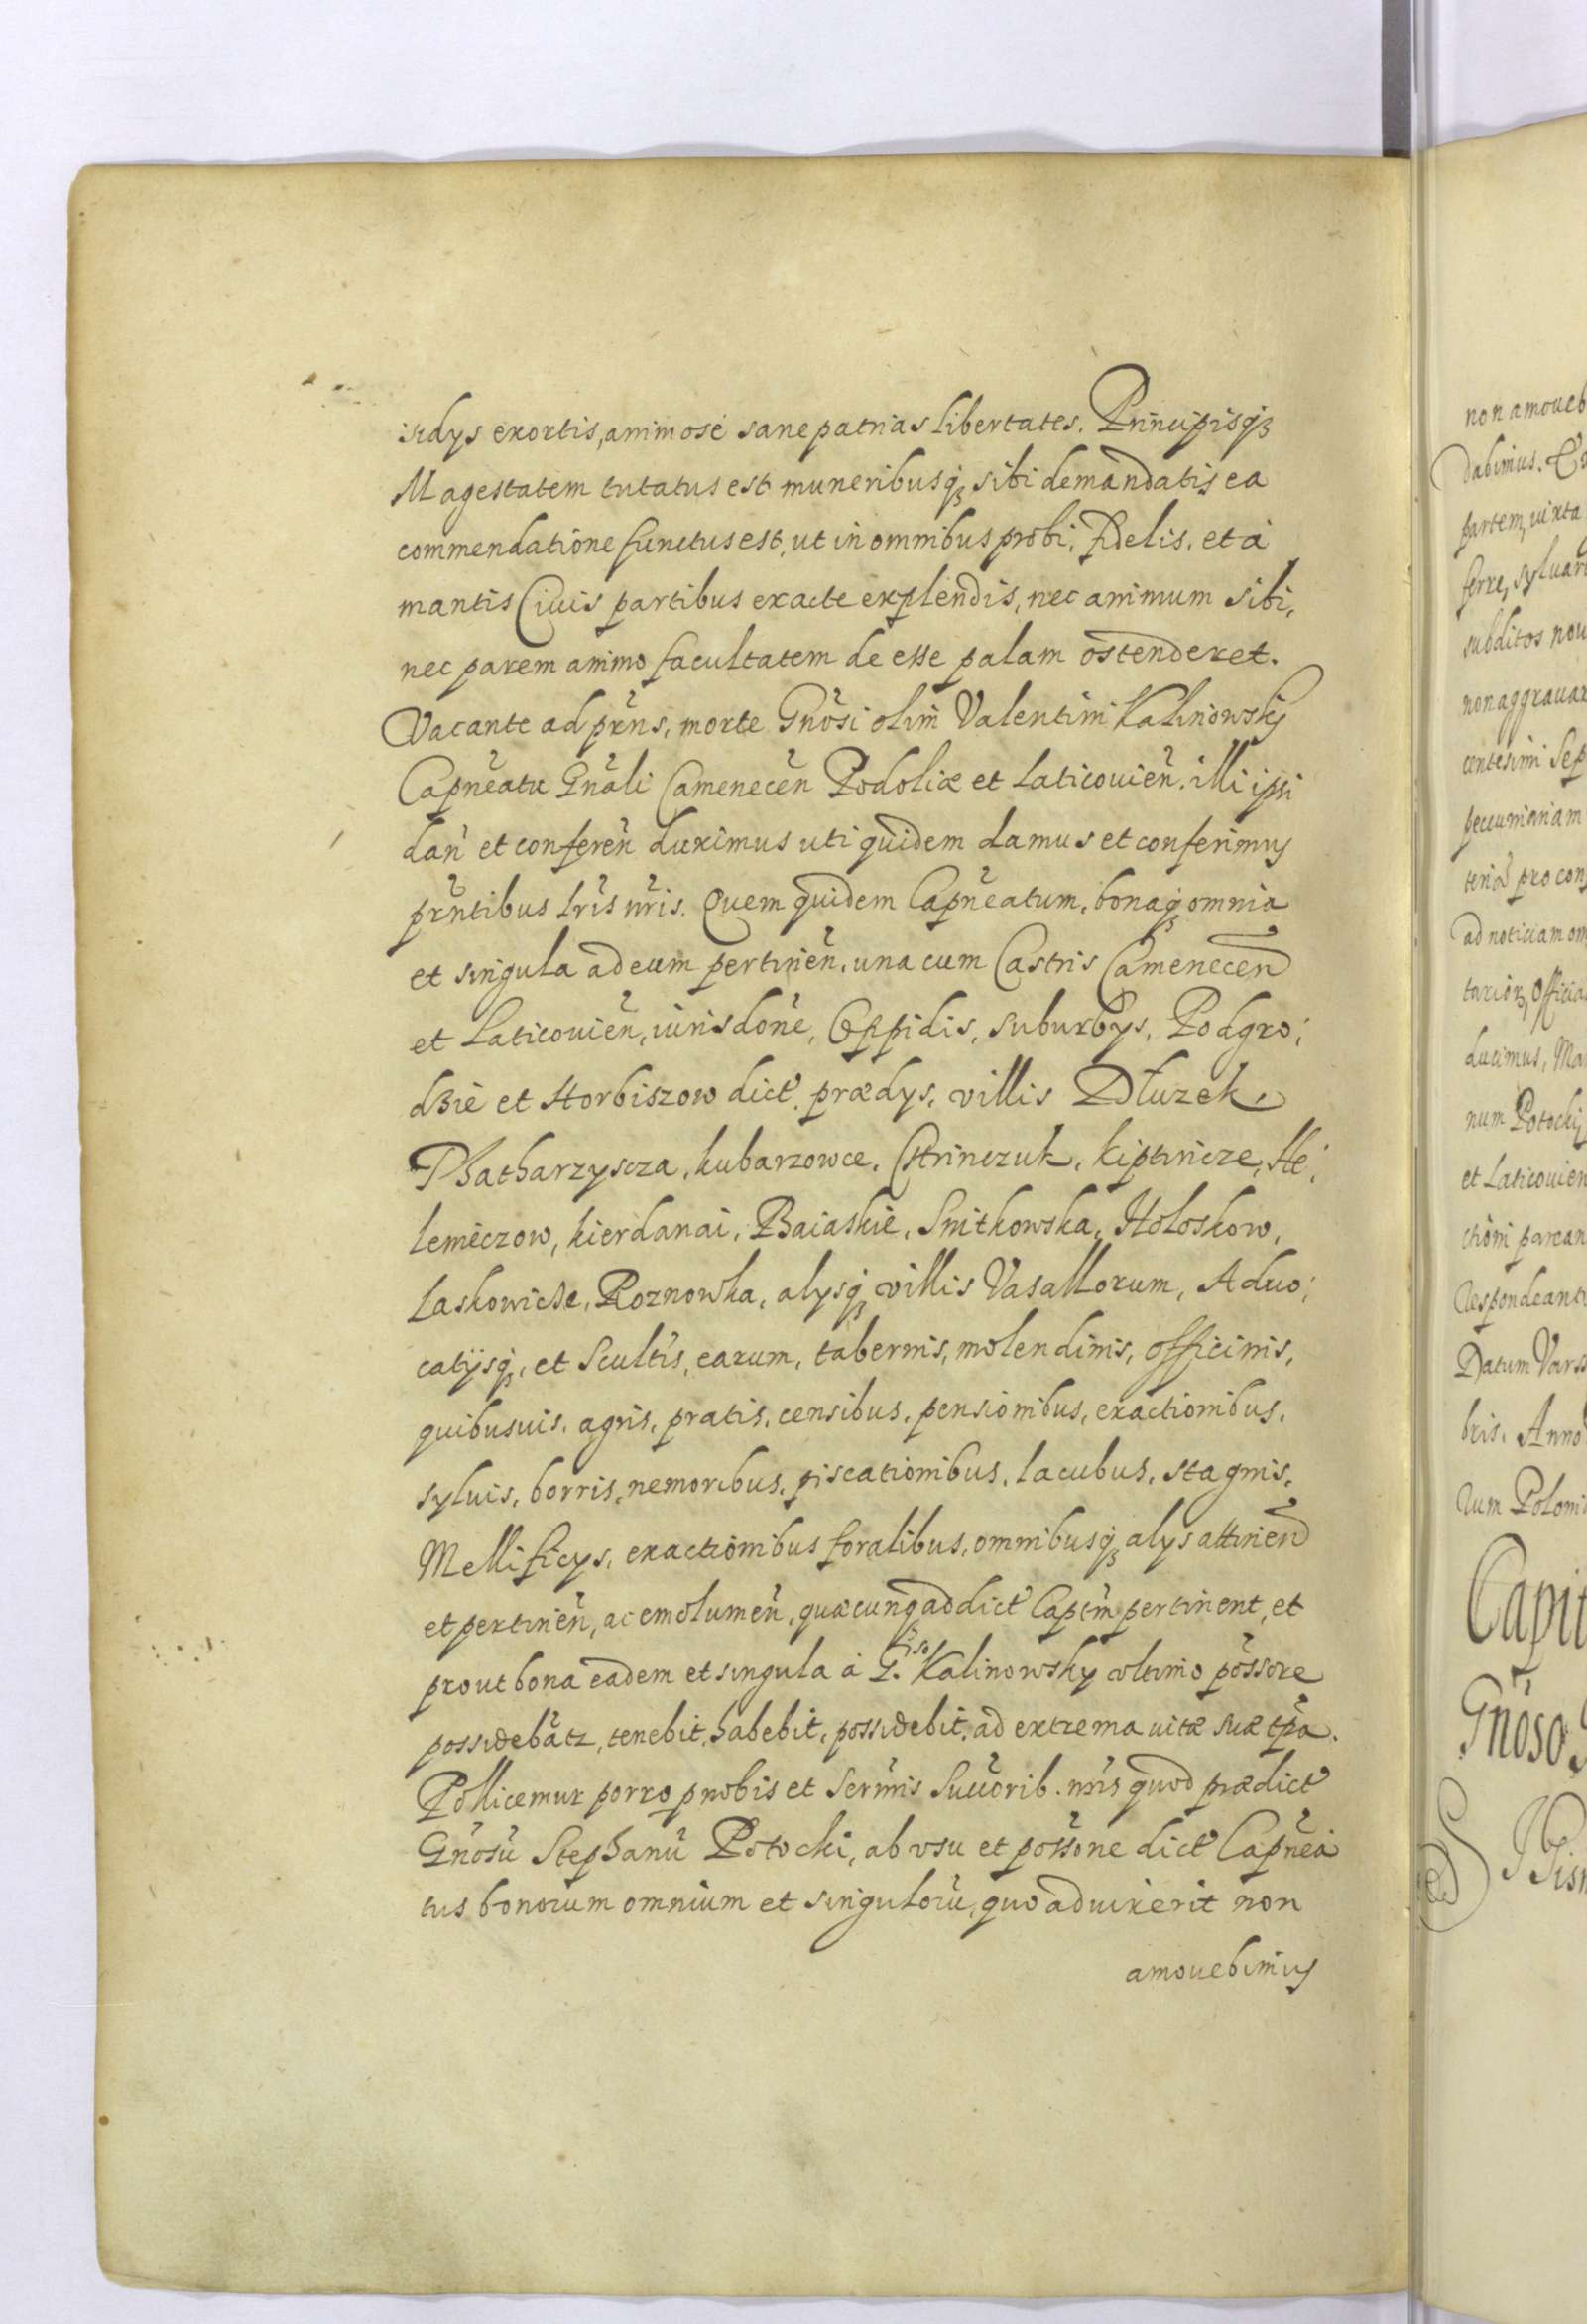 isdys exortis, animose sane patrias libertates, Principisq3
Magestatem tutatus est muneribusq3 sibi demandatis ea
commendatione functus est, ut in omnibus probi, fidelis, et a
mantis Ciuis partibus exacte explendis, nec animum sibi,
nec parem animo facultatem de esse palam ostenderet.
Vacante ad prns, morte Gnosi olim Valentini Kalinowskj
Capneatu Gnali Camenecen Podoliæ et Laticouien. illi ipsi
dan et conferen duximus uti quidem damus et conferimus
prntibus lris nris. Quem quidem Capneatum, bonaq3 omnia
et singula ad eum pertinen, una cum Castris Camenecen
et Laticouien, iurisdone, Oppidis, suburbys, Podgro:
dzie et Horbiszow dict. prædys, villis Dłuzek,
Thatharzyscza, kubarzowce, Ostrinczuk, kiptincze, He:
lemeczow, kierdanai, Baiaskie, Snitkowska, Holoskow,
Laskowicze, Roznowka, alysq3 villis Vasallorum, Aduo:
catijsq3, et Scultis, earum, tabernis, molendinis, officinis,
quibusuis, agris, pratis, censibus, pensionibus, exactionibus,
syluis, borris, nemoribus, piscationibus, lacubus, stagnis,
Mellificys, exactionibus foralibus, omnibusq3 alys attinen
et pertinen, ac emolumen, quæcunq3 ad dict Captm pertinent, et
prout bona eadem et singula a G. so Kalinowsky vltimo possore
possidebatr, tenebit, habebit, possidebit, ad extrema uitæ suæ tpa.
Pollicemur porro p nobis et Sermis Succorib. nris quod prædict
Gnosu Stephanu Potocki, ab vsu et possone dict Capnea
tus bonorum omnium et singuloru, quo aduixerit non
amouebimus
non amoueb
Dabimus.
partem, iuxta
ferre, syluar
subditos nou
non aggrauar
centesimi Sep
pecuniariam
pro con
ad noticiam om
Officia
ducimus, Ma
num Potockij
et Laticouien
ctioni parean
Respondeant
Datum Vars
bris. Anno
Poloni
Capit
Gnoso